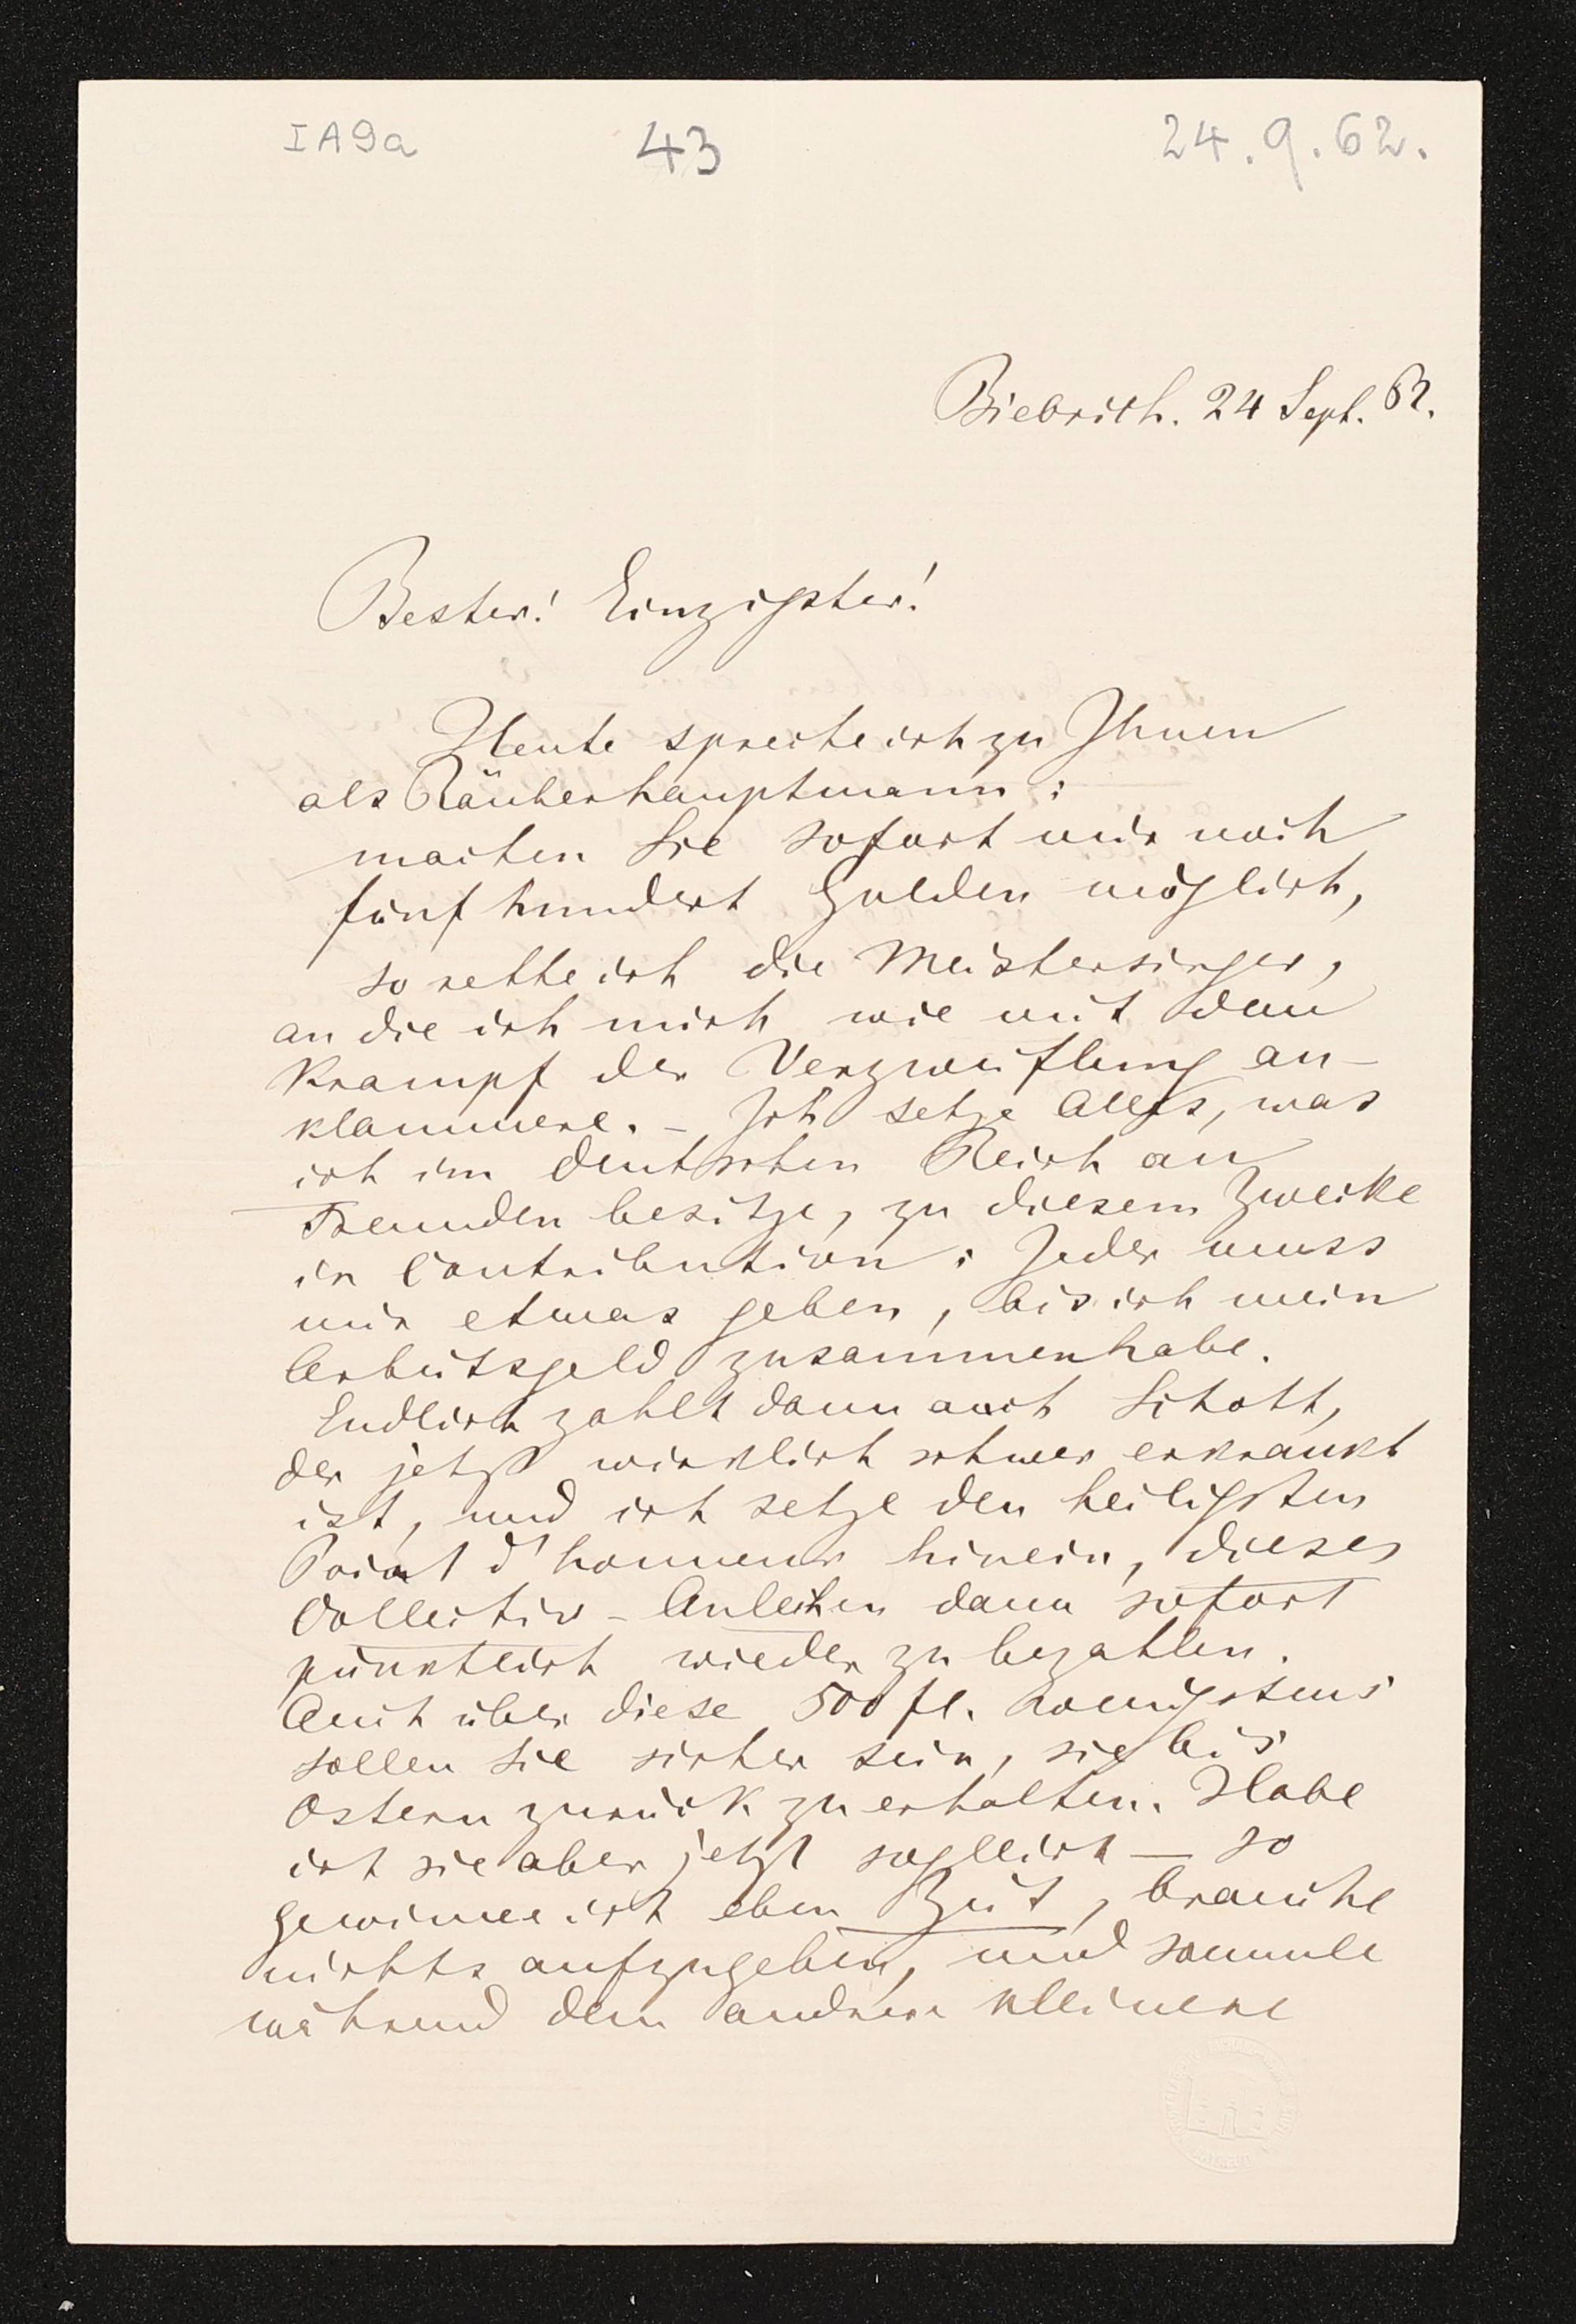 IA9a 43 24.9.62.
Biebrich. 24 Sept. 62.
Bester! Einzigster!
Heute spreche ich zu Ihnen
als Räuberhauptmann:
machen Sie sofort mir noch
fünf hundert Gulden möglich,
so rette ich die Meistersinger,
an die ich mich wie mit dem
Krampf der Verzweiflung an-
klammere. – Ich setze Alles, was
ich im deutschen Reich an
Freunden besitze, zu diesem Zwecke
in Contribution: Jeder muss
mir etwas geben, bis ich mein
Arbeitsgeld zusammenhabe.
Endlich zahlt dann auch Schott,
der jetzt wirklich schwer erkrankt
ist, und ich setze den heiligsten
Point d'honneur hinein, dieses
Collectiv-Anleihen dann sofort
pünktlich wieder zu bezahlen.
Auch über diese 500 fl. wenigstens
sollen Sie sicher sein, sie bis
Ostern zurück zu erhalten. Habe
ich sie aber jetzt sogleich – so
gewinne ich eben Zeit, brauche
nichts aufzugeben, und sammle
während dem andere kleinere